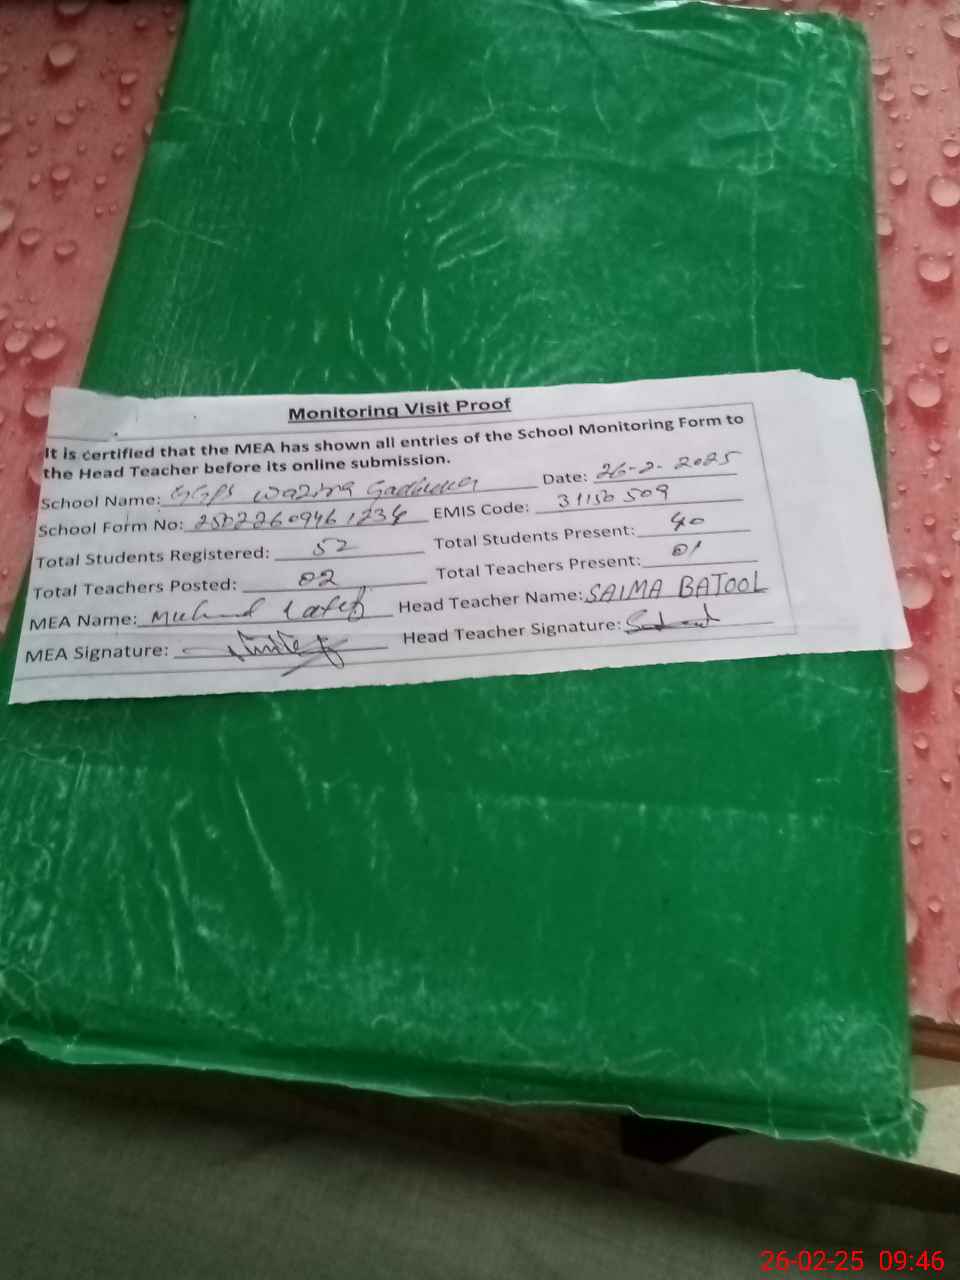 Monitoring Visit Proof
It is certified that the MEA has shown all entries of the School Monitoring Form to
the Head Teacher before its online submission.
School Name: GGPS Wazira Date: 26-2-2025
School Form No: EMIS Code: 31150509
Total Students Registered: 52 Total Students Present: 40
Total Teachers Posted: 02 Total Teachers Present: 01
MEA Name: Head Teacher Name: SAIMA BATOOL
MEA Signature: Head Teacher Signature:
26-02-25 09:46